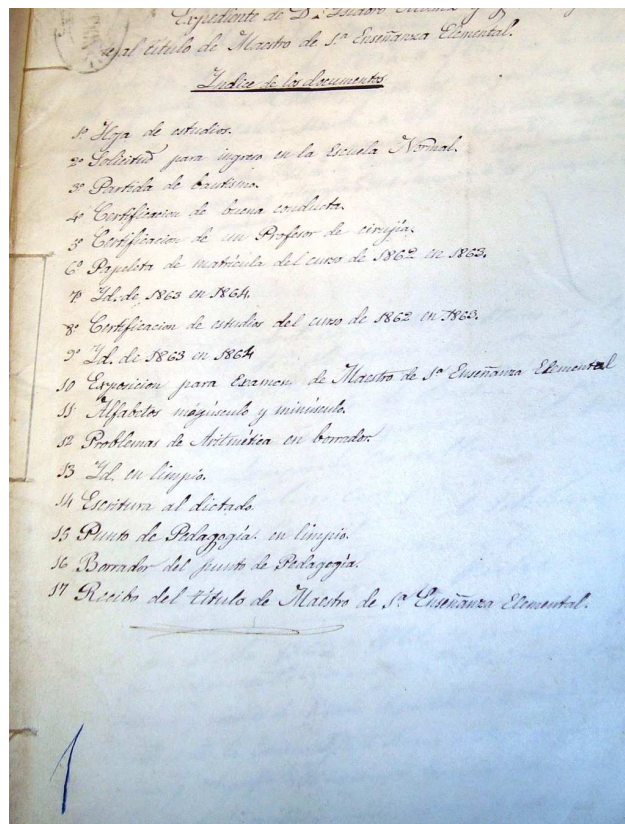 Expediente de D. Isidoro y
al título de Maestro de 1ª Enseñanza Elemental.
Indice de los documentos
1º Hoja de estudios.
2º Solicitud para ingreso en la Escuela Normal.
3º Partida de bautismo.
4º Certificacion de buena conducta.
5º Certificacion de un Profesor de cirujía.
6º Papeleta de matrícula del curso de 1862 en 1863.
7º Id. de 1863 en 1864.
8º Certificacion de estudios del curso de 1862 en 1863.
9º Id. de 1863 en 1864
10 Exposicion para Examen de Maestro de 1ª Enseñanza Elemental
11 Alfabetos mayúsculo y minúsculo.
12 Problemas de Aritmética en borrador
13 Id. en limpio.
14 Escritura al dictado
15 Punto de Pedagogía en limpio.
16 Borrador del punto de Pedagogía.
17 Recibo del título de Maestro de 1ª Enseñanza Elemental.